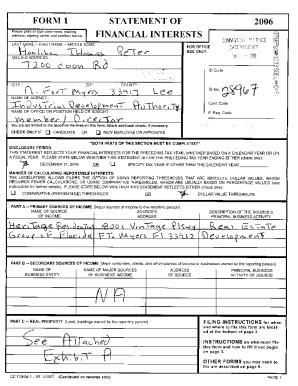 FORM 1 STATEMENT OF 2006
FINANCIAL INTERESTS
Please print or type your name, mailing address, agency name, and position below:
LAST NAME -- FIRST NAME -- MIDDLE NAME
Thomas Peter
MAILING ADDRESS
7200 Coon Rd
FOR OFFICE USE ONLY:
ID Code
CITY ZIP COUNTY
N. Fort Myers 33917 Lee
ID No. 28967
NAME OF AGENCY
Industrial Development Authority
Conf. Code
NAME OF OFFICE OR POSITION HELD OR SOUGHT
Member/Director
P. Req. Code
You are not limited to the space on the lines on this form. Attach additional sheets, if necessary.
CHECK ONLY IF CANDIDATE OR NEW EMPLOYEE OR APPOINTEE
**BOTH PARTS OF THIS SECTION MUST BE COMPLETED**
DISCLOSURE PERIOD:
THIS STATEMENT REFLECTS YOUR FINANCIAL INTERESTS FOR THE PRECEDING TAX YEAR, WHETHER BASED ON A CALENDAR YEAR OR ON
A FISCAL YEAR. PLEASE STATE BELOW WHETHER THIS STATEMENT IS FOR THE PRECEDING TAX YEAR ENDING EITHER (check one):
DECEMBER 31, 2006 OR SPECIFY TAX YEAR IF OTHER THAN THE CALENDAR YEAR:
MANNER OF CALCULATING REPORTABLE INTERESTS:
COMPARATIVE (PERCENTAGE) THRESHOLDS OR DOLLAR VALUE THRESHOLDS
PART A -- PRIMARY SOURCES OF INCOME [Major sources of income to the reporting person]
NAME OF SOURCE OF INCOME SOURCE'S ADDRESS DESCRIPTION OF THE SOURCE'S PRINCIPAL BUSINESS ACTIVITY
Heritage Residential 8001 Vintage Pkwy Real Estate
Group of Florida Ft. Myers Fl 33912 Development
PART B -- SECONDARY SOURCES OF INCOME [Major customers, clients, and other sources of income to businesses owned by the reporting person]
NAME OF BUSINESS ENTITY NAME OF MAJOR SOURCES OF BUSINESS' INCOME ADDRESS OF SOURCE PRINCIPAL BUSINESS ACTIVITY OF SOURCE
NA
PART C -- REAL PROPERTY [Land, buildings owned by the reporting person]
See Attached
Exhibit A
FILING INSTRUCTIONS for when and where to file this form are located at the bottom of page 2.
INSTRUCTIONS on who must file this form and how to fill it out begin on page 3.
OTHER FORMS you may need to file are described on page 6.
CE FORM 1 - Eff. 1/2007 (Continued on reverse side) PAGE 1